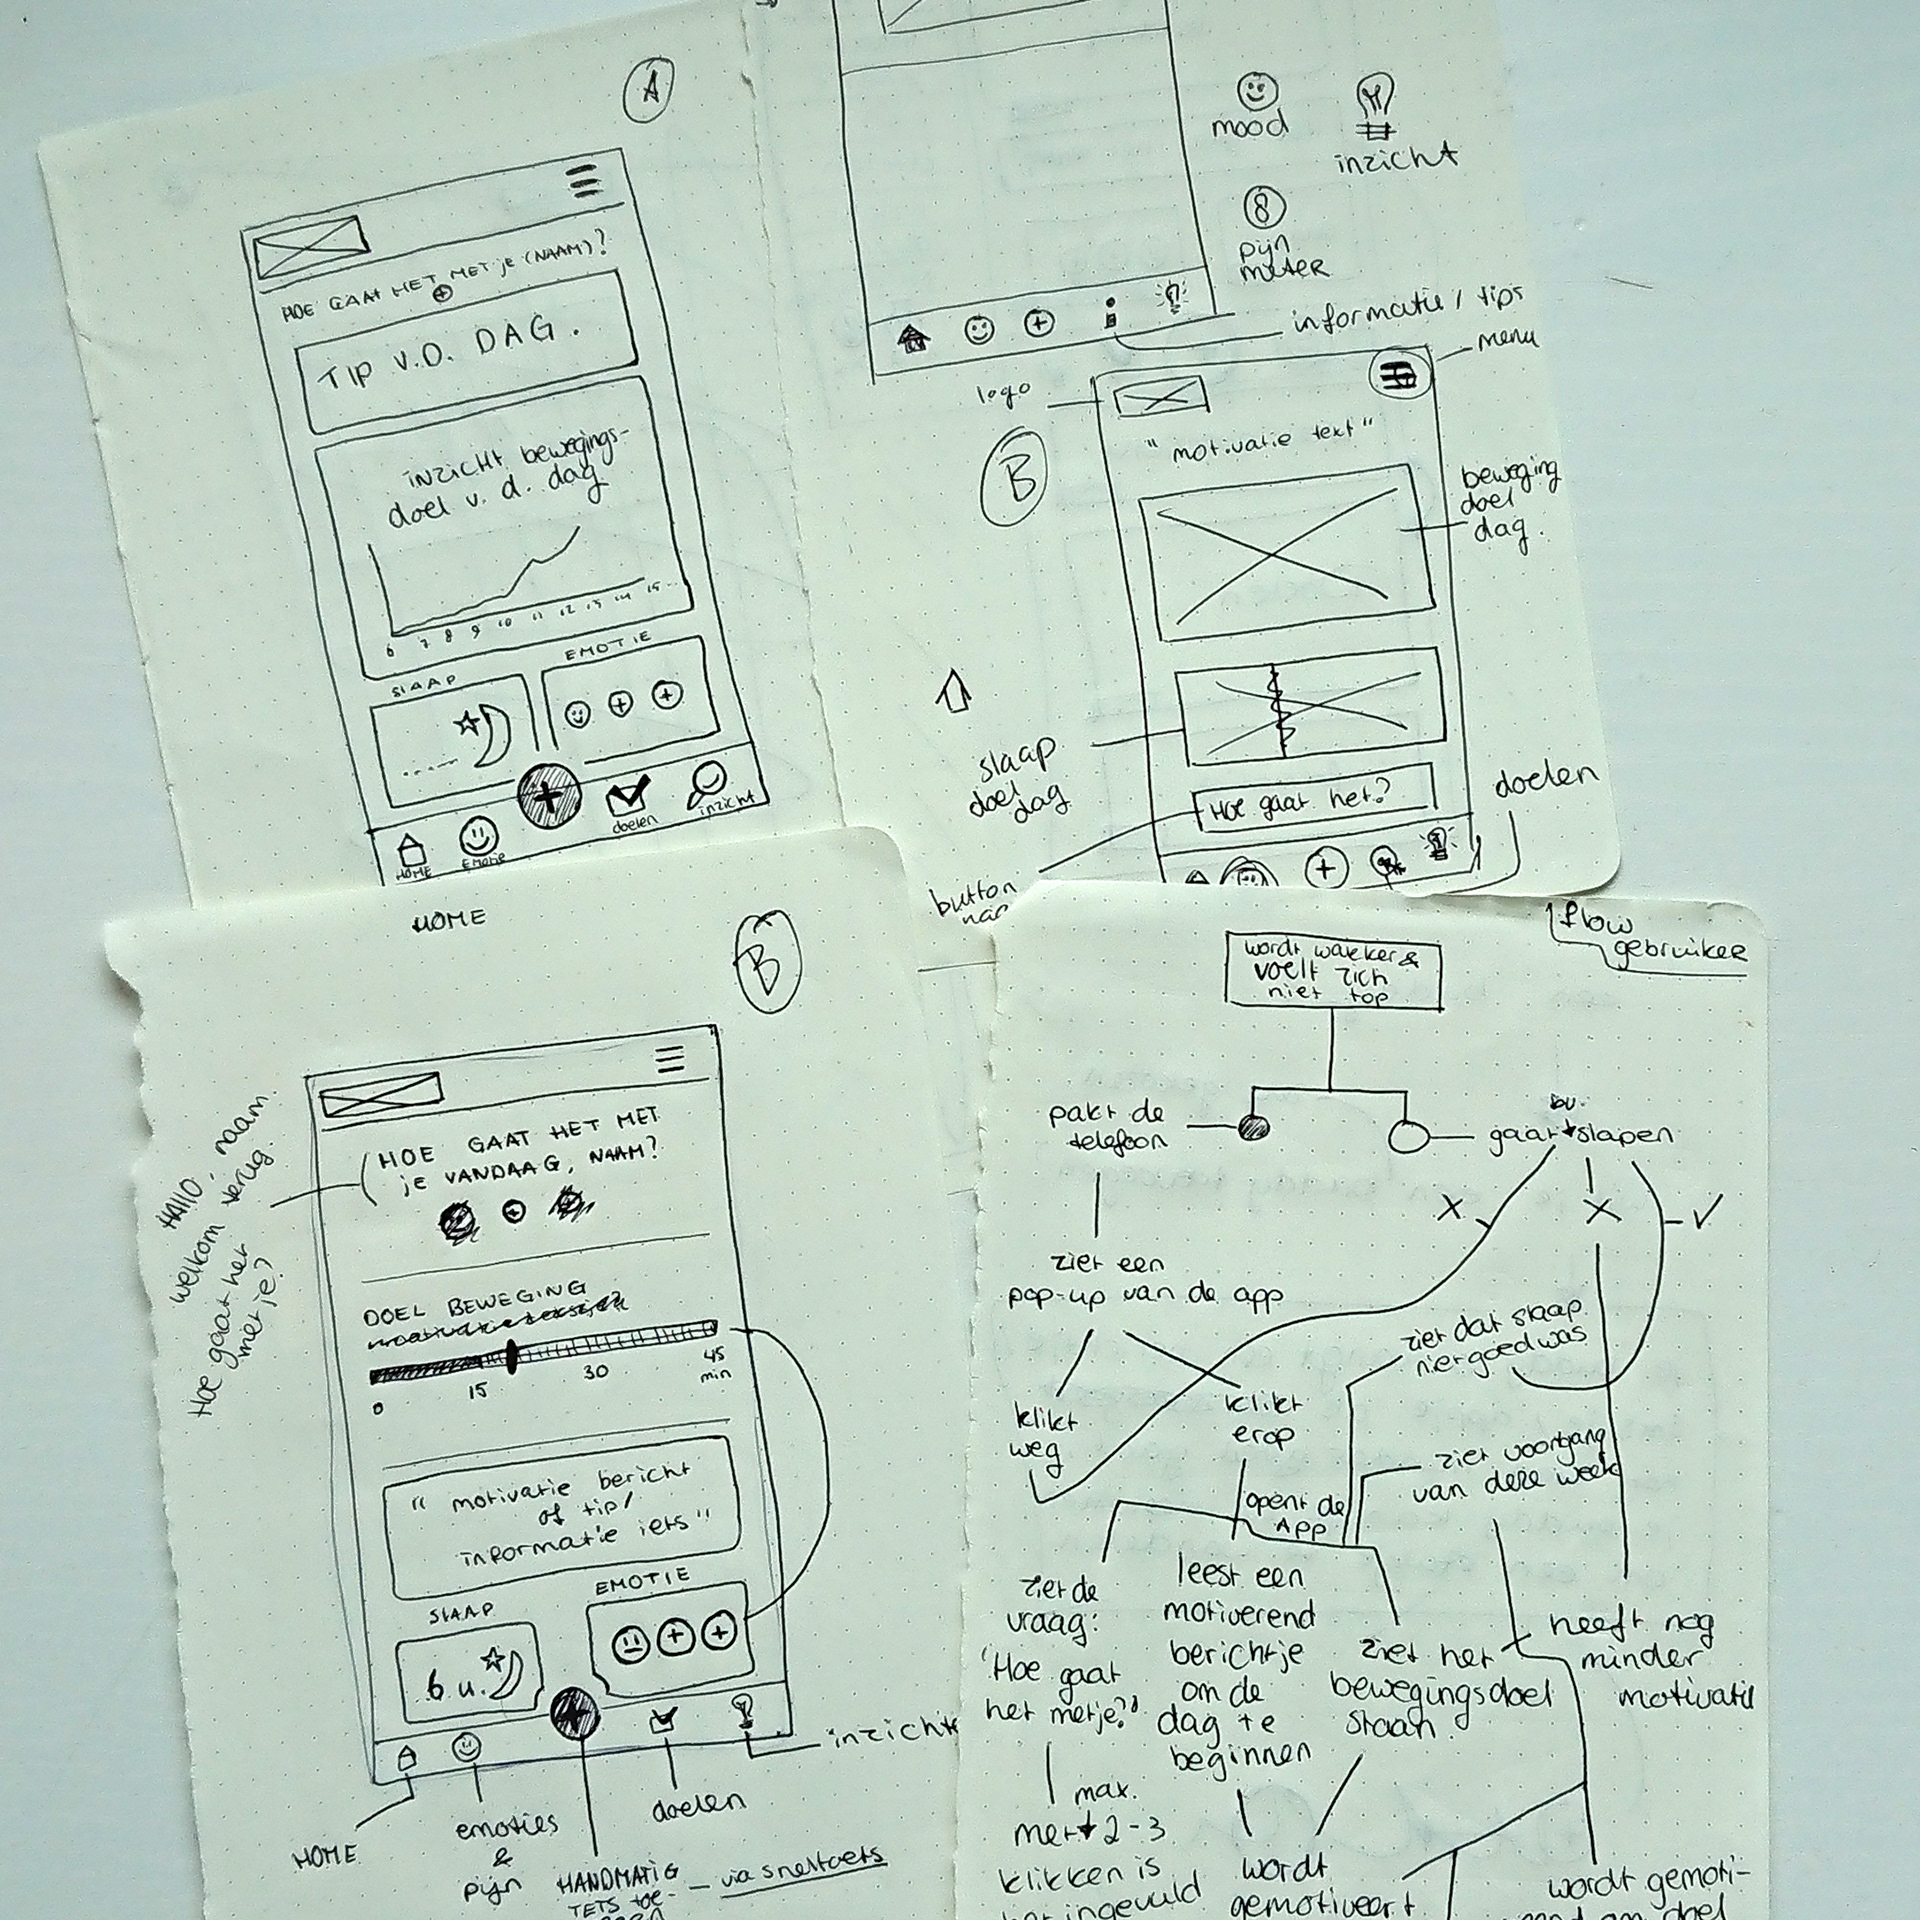 A
HOE GAAT HET MET je (NAAM)?
TIP V.D. DAG.
inzicht bewegings-
doel v. d. dag
6 7 8 9 10 11 12 13 14 15
SLAAP
EMOTIE
HOME
Emotie
doelen
inzicht
HOME
mood
inzicht
8
pijn
meter
informatie / tips
menu
logo
B
"motivatie text"
beweging
doel
dag.
slaap
doel
dag
Hoe gaat het?
doelen
button
B
HOE GAAT HET MET
je VANDAAG, NAAM?
Hallo, naam.
welkom terug.
Hoe gaat het
met je?
DOEL BEWEGING
0 15 30 45
min
"motivatie bericht
of tip/
informatie iets"
SLAAP
EMOTIE
6 u.
inzicht
HOME
emoties
&
pijn
HANDMATIG
IETS toe-
via sneltoets
doelen
flow
gebruiker
wordt wakker &
voelt zich
niet top
pakt de
telefoon
gaat slapen
ziet een
pop-up van de app
klikt
weg
klikt
erop
ziet dat slaap
niet goed was
ziet voortgang
van deze week
opent de
App
ziet de
vraag:
'Hoe gaat
het met je?'
leest een
motiverend
berichtje
om de
dag te
beginnen
ziet het
bewegingsdoel
staan.
heeft nog
minder
motivatie
max.
met 2-3
klikken is
het ingevuld
wordt
gemotiveert
wordt gemoti-